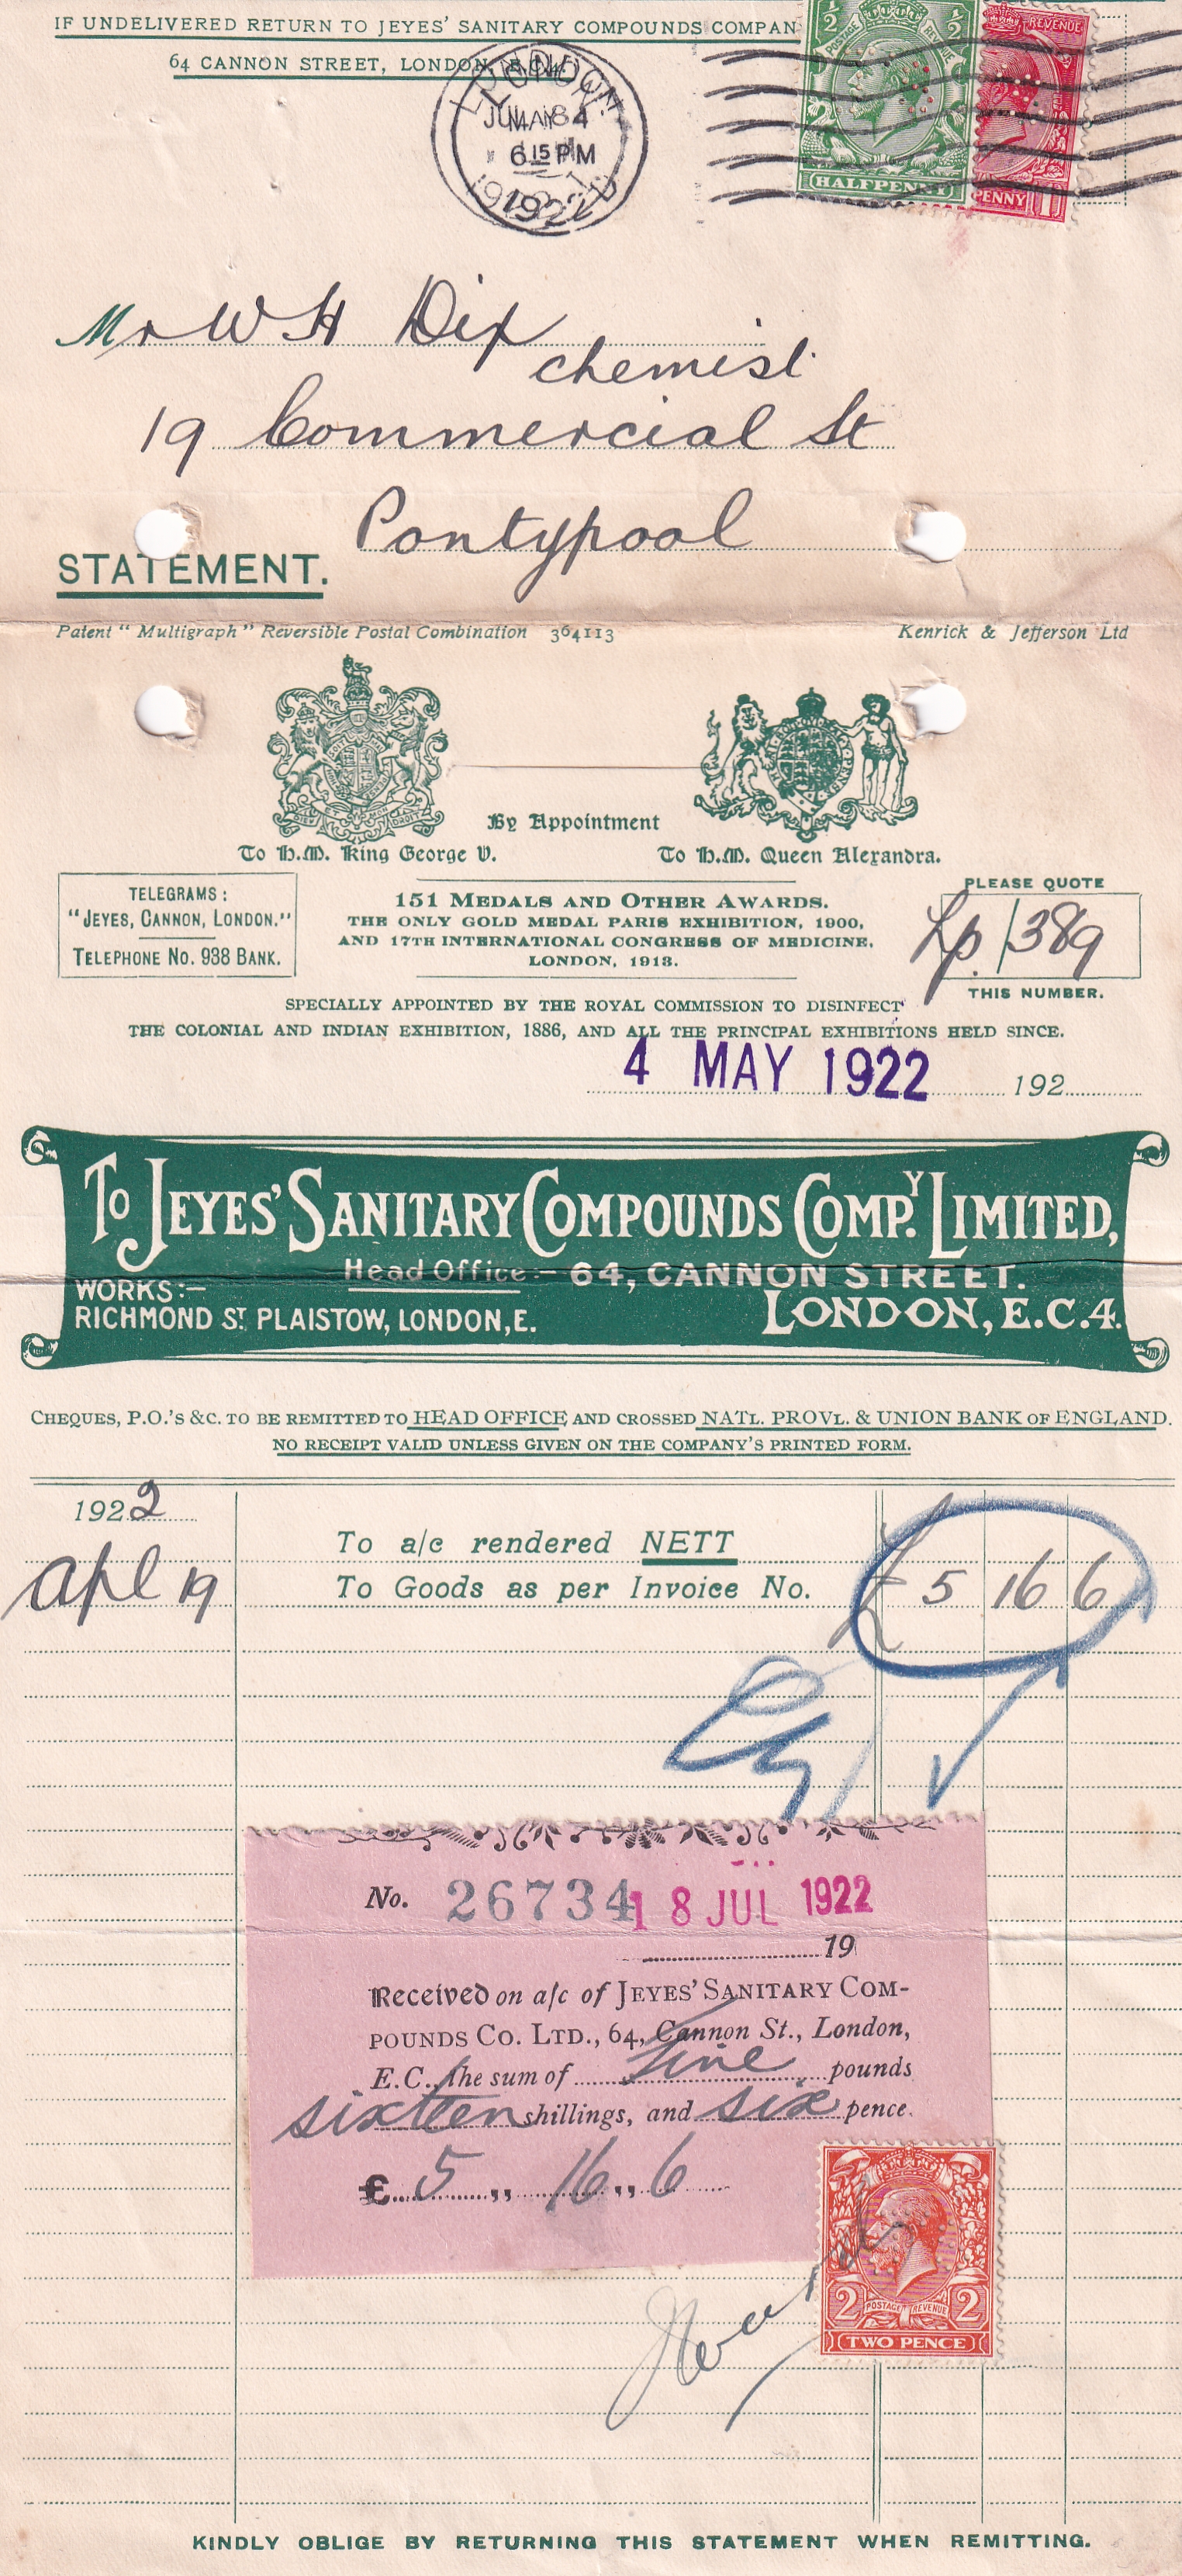 IF UNDELIVERED RETURN TO JEYES' SANITARY COMPOUNDS COMPAN
64 CANNON STREET, LONDON, E.C.4.
LONDON
MAY 4
6 15 PM
1922
POSTAGE REVENUE
½ ½
HALFPENNY
REVENUE
PENNY 1
Mr W H Dix
chemist
19 Commercial St
Pontypool
STATEMENT.
Patent "Multigraph" Reversible Postal Combination 364113 Kenrick & Jefferson Ltd
By Appointment
To H.M. King George V. To H.M. Queen Alexandra.
TELEGRAMS:
"JEYES, CANNON, LONDON."
TELEPHONE NO. 938 BANK.
151 MEDALS AND OTHER AWARDS.
THE ONLY GOLD MEDAL PARIS EXHIBITION, 1900,
AND 17TH INTERNATIONAL CONGRESS OF MEDICINE,
LONDON, 1913.
PLEASE QUOTE
Lp./389
THIS NUMBER.
SPECIALLY APPOINTED BY THE ROYAL COMMISSION TO DISINFECT
THE COLONIAL AND INDIAN EXHIBITION, 1886, AND ALL THE PRINCIPAL EXHIBITIONS HELD SINCE.
4 MAY 1922 192
TO JEYES' SANITARY COMPOUNDS COMPY. LIMITED,
Head Office:- 64, CANNON STREET.
WORKS:-
RICHMOND ST. PLAISTOW, LONDON, E. LONDON, E.C.4.
CHEQUES, P.O.'S &C. TO BE REMITTED TO HEAD OFFICE AND CROSSED NATL. PROVL. & UNION BANK OF ENGLAND.
NO RECEIPT VALID UNLESS GIVEN ON THE COMPANY'S PRINTED FORM.
1922
To a/c rendered NETT
Apl 19 To Goods as per Invoice No. £ 5 16 6
No. 26734 18 JUL 1922
19
Received on a/c of JEYES' SANITARY COM-
POUNDS CO. LTD., 64, Cannon St., London,
E.C., the sum of five pounds
sixteen shillings, and six pence.
£ 5 ,, 16 ,, 6
2 POSTAGE REVENUE 2
TWO PENCE
KINDLY OBLIGE BY RETURNING THIS STATEMENT WHEN REMITTING.